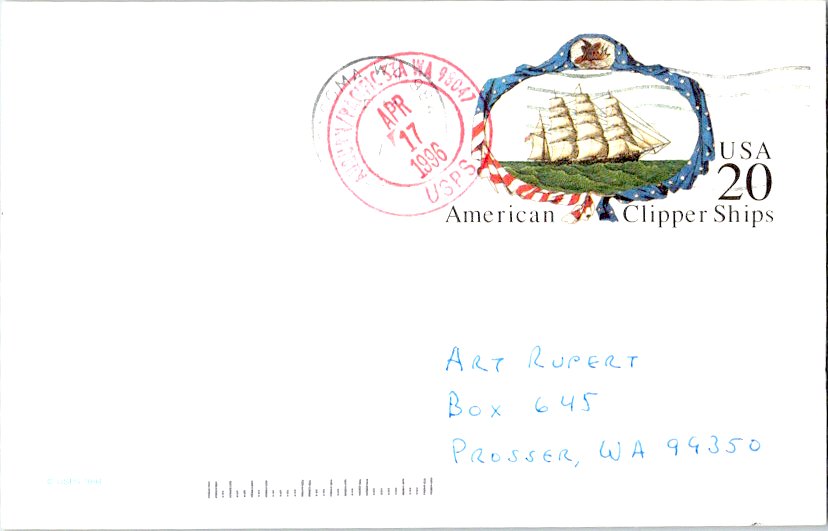 WA 98047
APR
17
1996
USPS
USA
20
American Clipper Ships
ART RUPERT
BOX 645
PROSSER, WA 99350